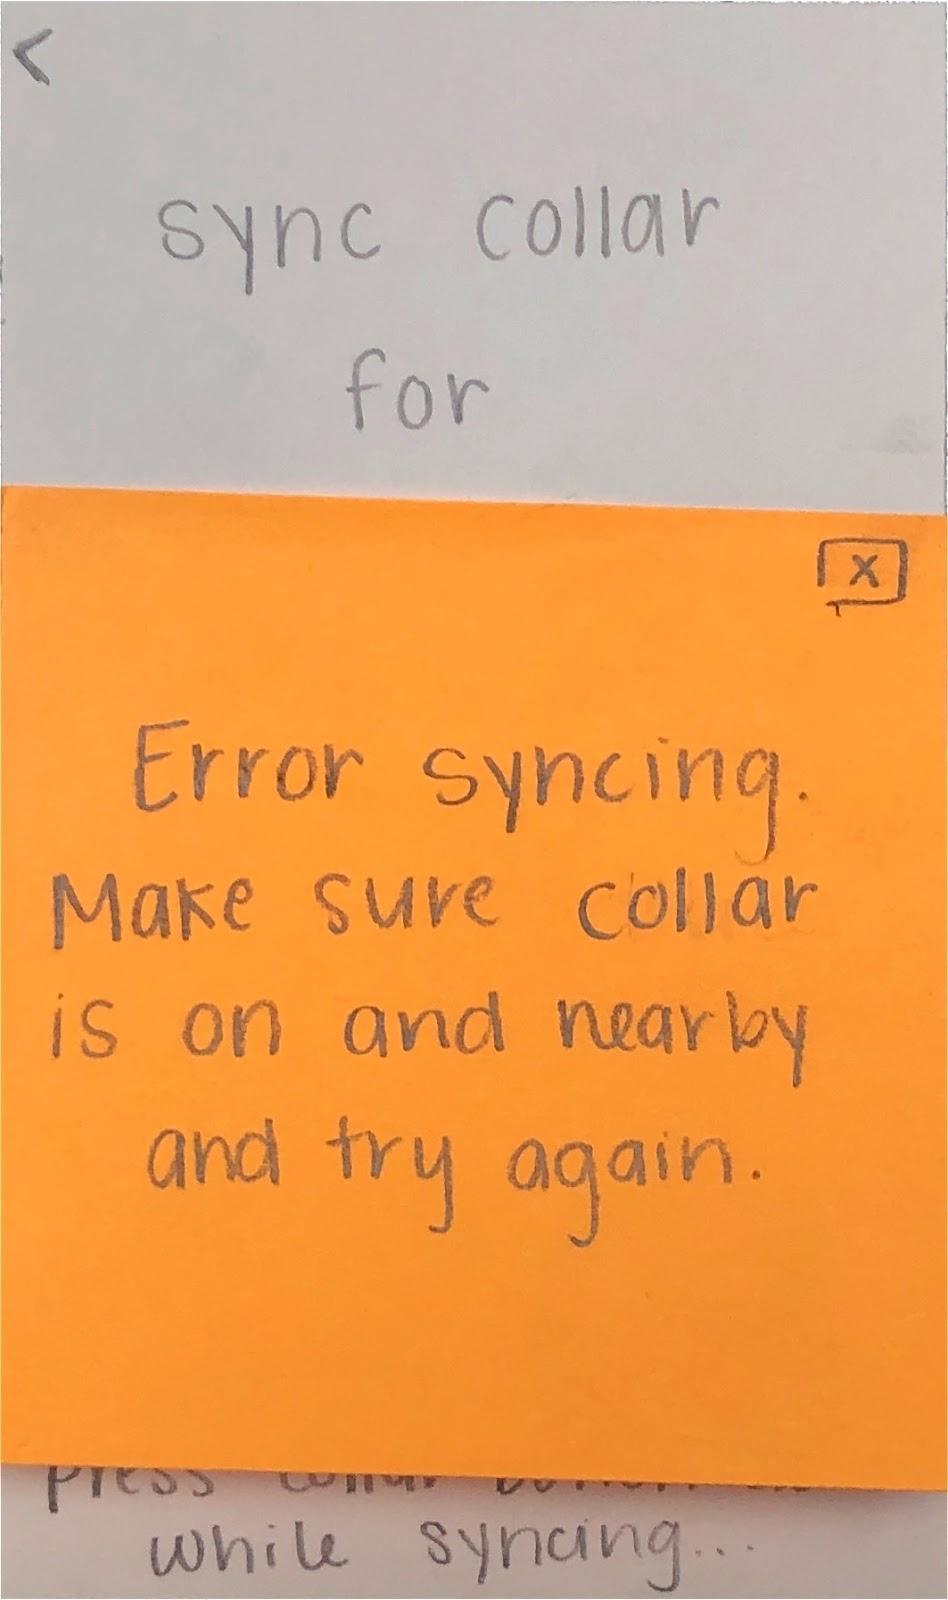 <
sync collar
for
X
Error syncing.
Make sure collar
is on and nearby
and try again.
press collar button
while syncing...